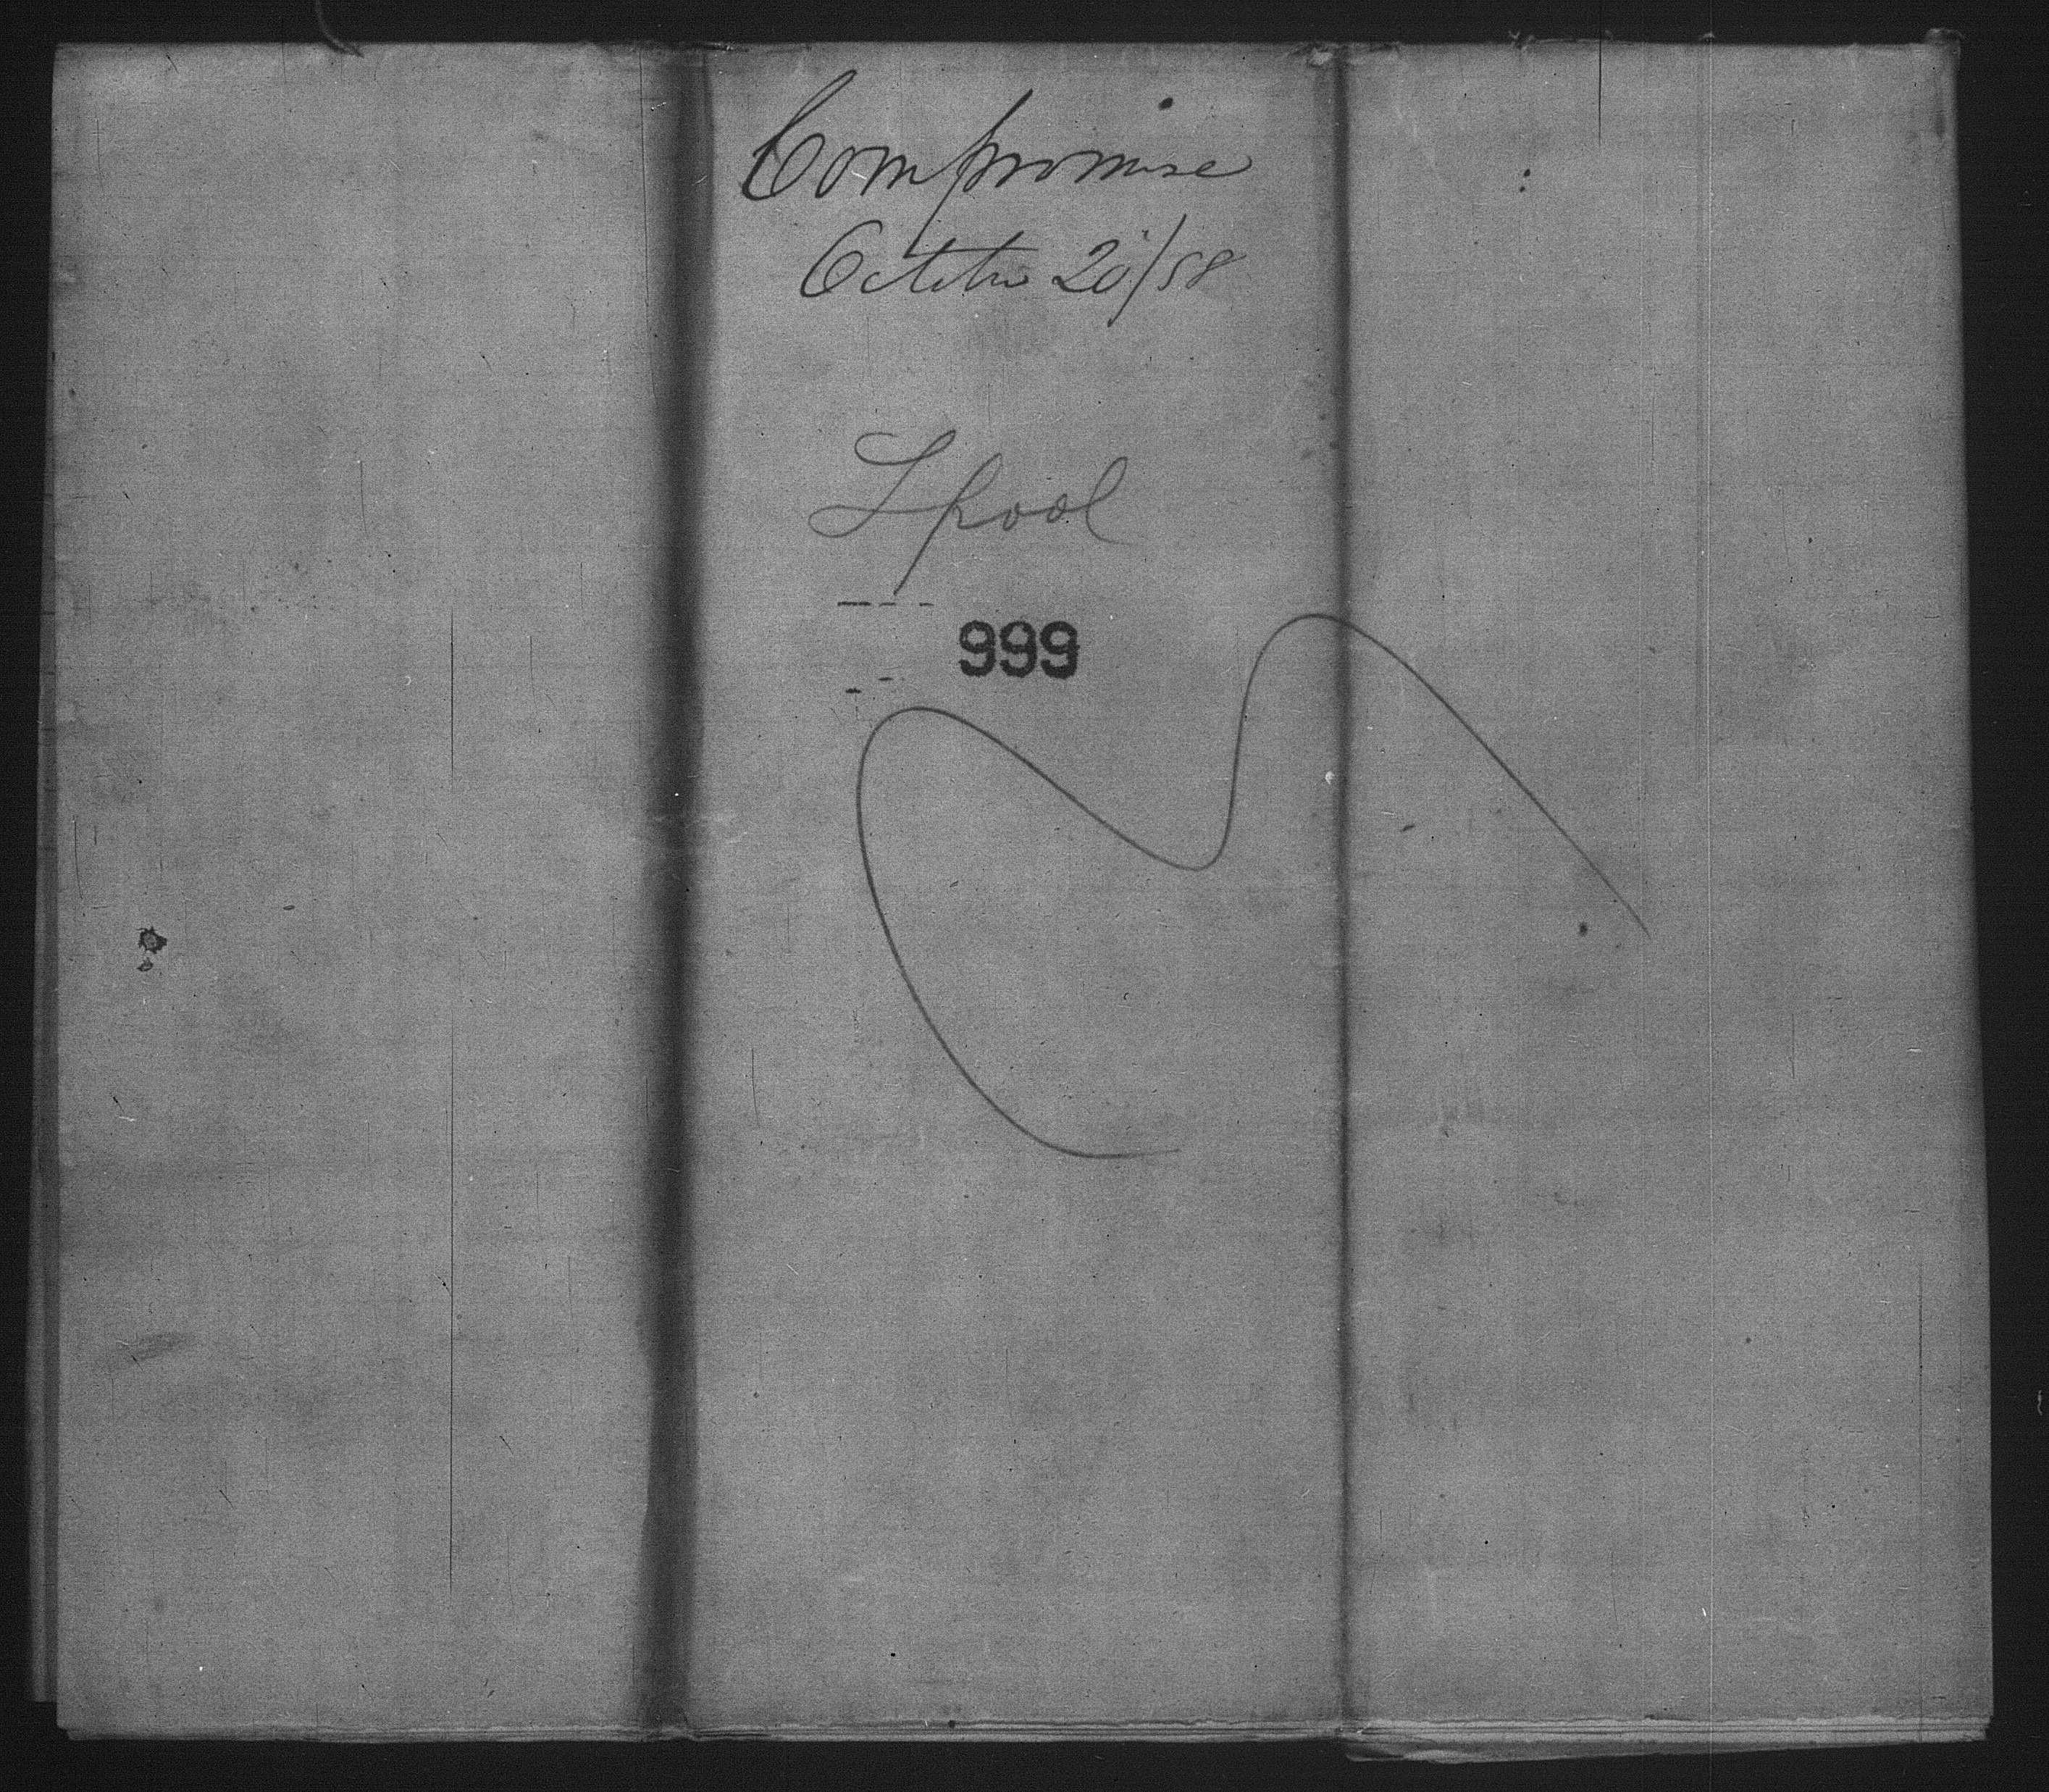 Compromise
October 20/58
Lpool
999